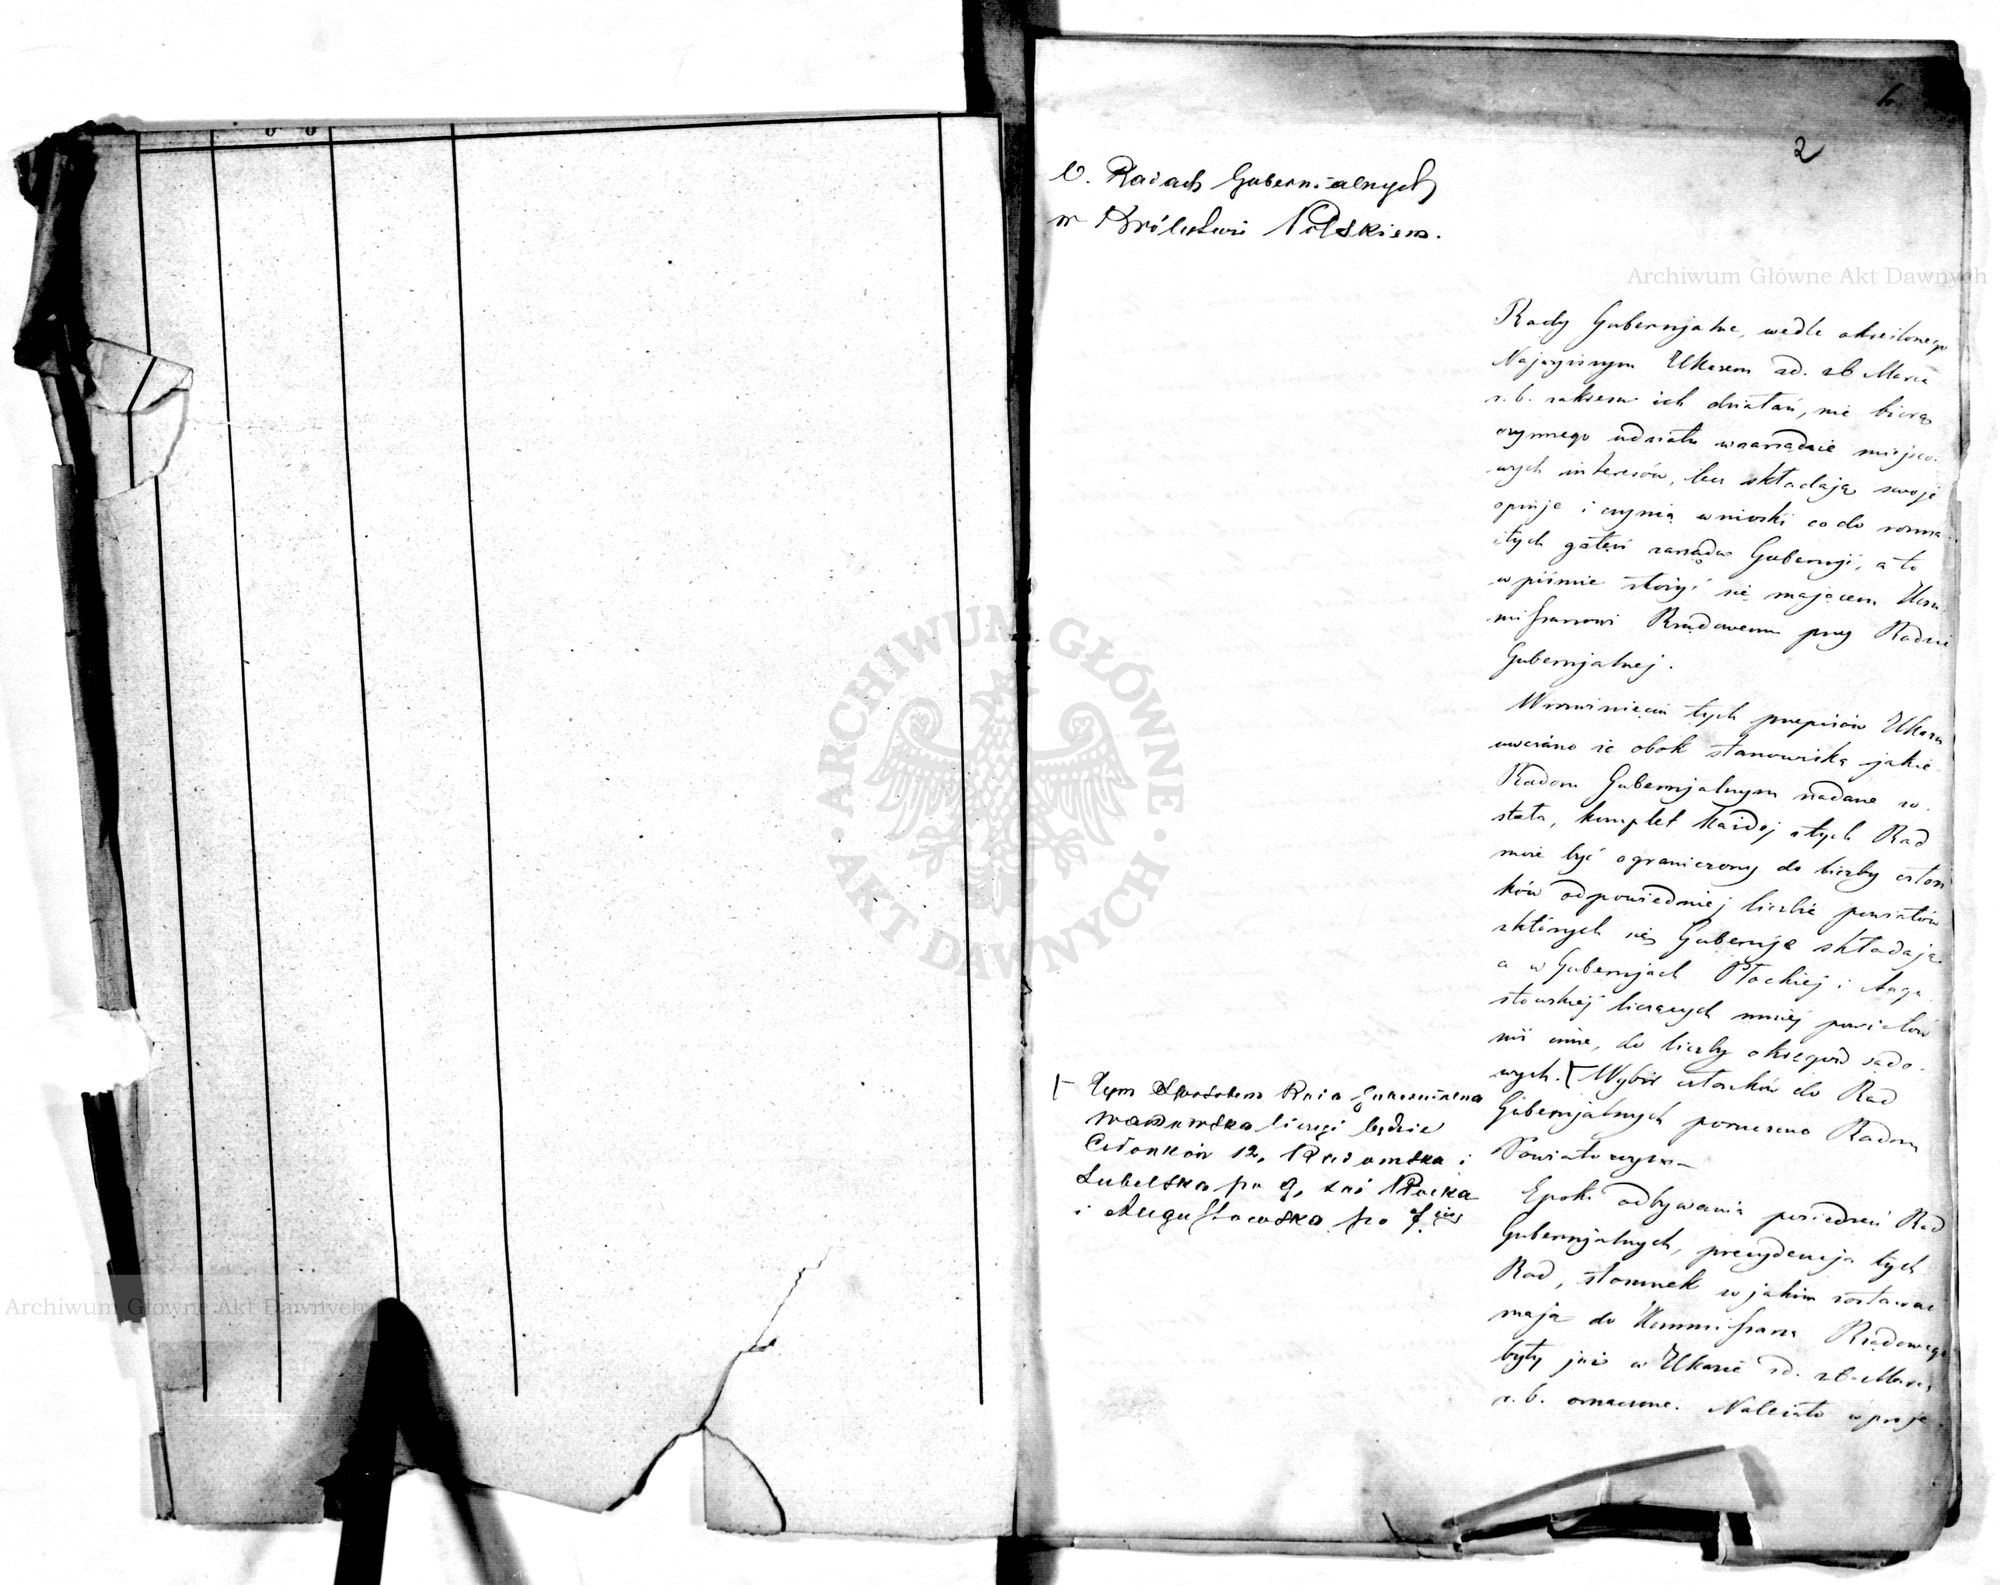 2
O Radach Gubernialnych
w Królestwie Polskiem.
Rady Gubernjalne, wedle określonego
Najwyższym Ukazem z d. 26 Marca
r. b. zakresu ich działań, nie biorą
czynnego udziału w zarządzie miejsco-
wych interesów, lecz składają swoje
opinje i czynią wnioski co do rozma-
itych gałęzi zarządu Gubernji, a to
w piśmie złożyć się mającem Kom-
missarzowi Rządowemu przy Radzie
Gubernjalnej.
W rozwinięciu tych przepisów Ukazu
uważano że obok stanowiska jakie
Radom Gubernjalnym nadane zo-
stało, komplet każdej z tych Rad
może być ograniczony do liczby człon-
ków odpowiedniej liczbie powiatów
z których się Gubernje składają
a w Gubernjach Płockiej i Augu-
stowskiej liczących mniej powiatów
niż inne, do liczby okręgów sądo-
wych. Wybór członków do Rad
Gubernjalnych poruczono Radom
Powiatowym.
Tym sposobem Rada Gubernialna
Warszawska liczyć będzie
Członków 12, Radomska i
Lubelska po 9, zaś Płocka
i Augustowska po 7.
Epoki odbywania posiedzeń Rad
Gubernjalnych, prezydencja tych
Rad, stosunek w jakim zostawać
mają do Kommissarza Rządowego
były już w Ukazie z d. 26 Marca
r. b. oznaczone. Należało w proje-
Archiwum Główne Akt Dawnych
ARCHIWUM GŁÓWNE
AKT DAWNYCH
Archiwum Główne Akt Dawnych